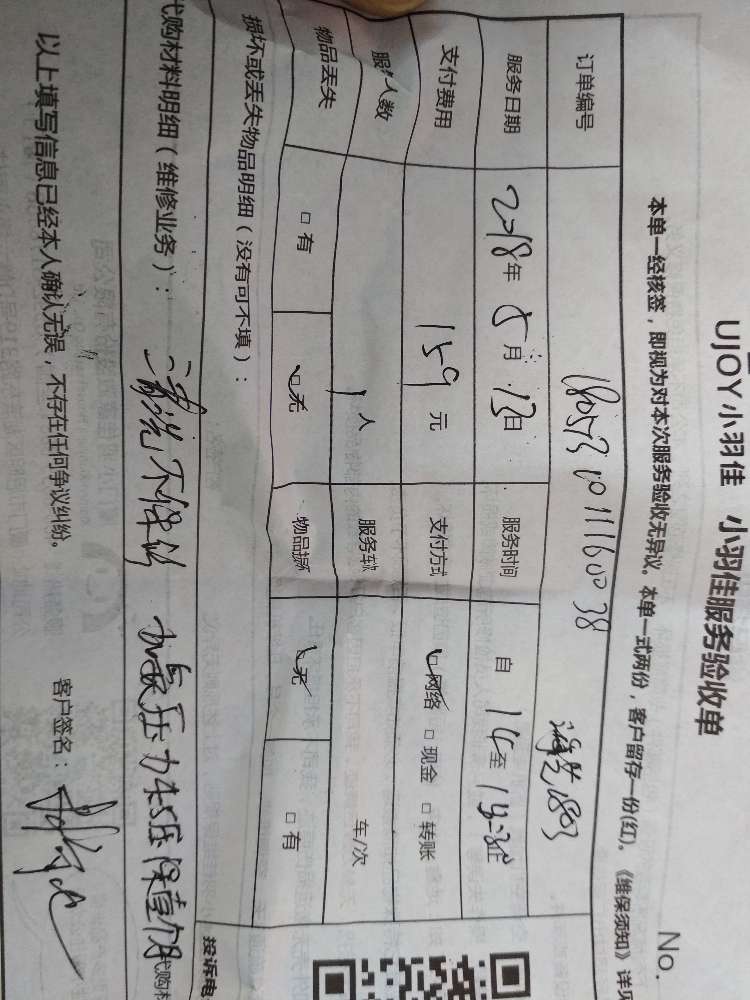 UJOY小羽佳 小羽佳服务验收单
No.
本单一经核签，即视为对本次服务验收无异议。本单一式两份，客户留存一份(红)。《维保须知》详见
订单编号
服务日期 2018年 5月 13日 服务时间 自 14至
支付费用 159元 支付方式 □网络 □现金 □转账
服务人数 1人 服务车 车/次
物品丢失 □有 □无 物品损 □无 □有
损坏或丢失物品明细（没有可不填）：
投诉电
代购材料明细（维修业务）： 清洗不保修 加氟压力 保壹个月 代购材
以上填写信息已经本人确认无误，不存在任何争议纠纷。 客户签名：